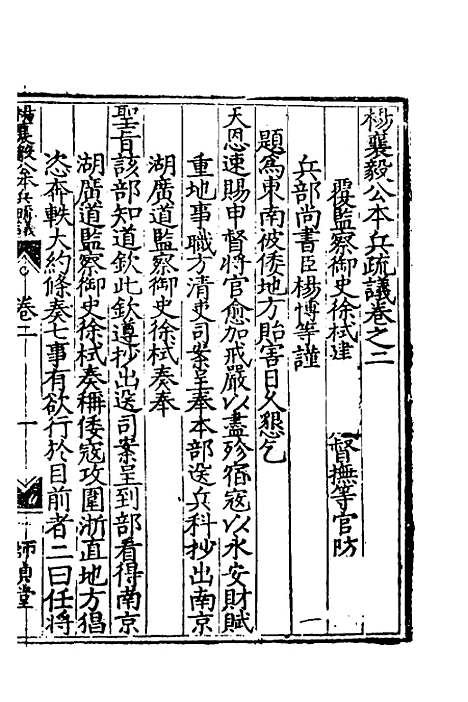 楊襄毅公本兵疏議卷之二
覆監察御史徐栻建　督撫等官防
兵部尚書臣楊博等謹
題為東南被倭地方貽害日久懇乞
天恩速賜申督將官愈加戒嚴以盡殄宿寇以永安財賦
重地事職方清吏司案呈奉本部送兵科抄出南京
湖廣道監察御史徐栻奏奉
聖旨該部知道欽此欽遵抄出送司案呈到部看得南京
湖廣道監察御史徐栻奏稱倭寇攻圍浙直地方猖
恣奔軼大約條奏七事有欲行於目前者二曰任將
楊襄毅公本兵疏議
卷二
一
師貞堂